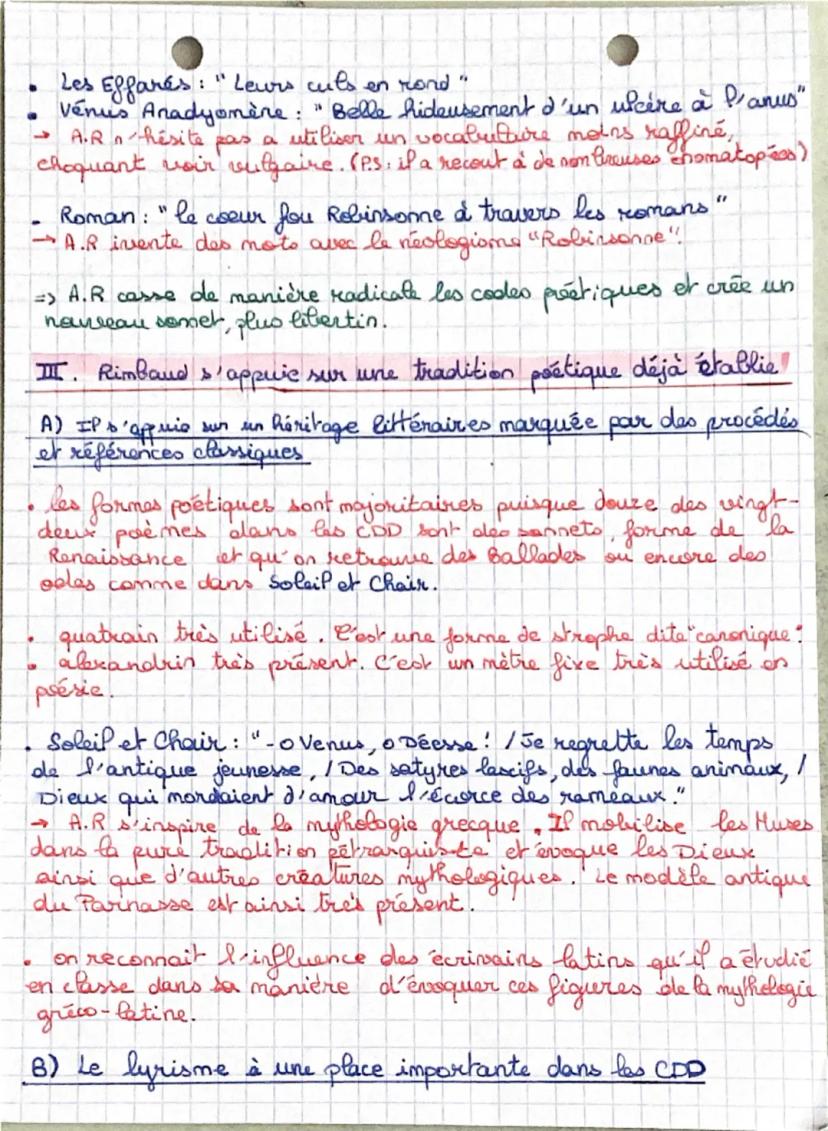 • Les Effarés : "Leurs culs en rond"
• Vénus Anadyomène : "Belle hideusement d'un ulcère à l'anus"
→ A.R n'hésite pas a utiliser un vocabulture moins raffiné,
choquant voir vulgaire. (P.S : il a recout à de nombreuses onomatopées)
- Roman : "le coeur fou Robinsonne à travers les romans"
→ A.R invente des mots avec le néologisme "Robinsonne".
=> A.R casse de manière radicale les codes poétiques et crée un
nouveau sonnet, plus libertin.
III. Rimbaud s'appuie sur une tradition poétique déjà établie
A) Il s'appuie sur un héritage littéraires marquée par des procédés
et références classiques
• les formes poétiques sont majoritaires puisque douze des vingt-
deux poèmes dans les CDD sont des sonnets, forme de la
Renaissance et qu'on retrouve des Ballades ou encore des
odes comme dans Soleil et Chair.
• quatrain très utilisé. C'est une forme de strophe dite "canonique".
• alexandrin très présent. C'est un mètre fixe très utilisé en
poésie.
• Soleil et Chair : "- O Venus, o Déesse ! / Je regrette les temps
de l'antique jeunesse, / Des satyres lascifs, des faunes animaux, /
Dieux qui mordaient d'amour l'écorce des rameaux."
→ A.R s'inspire de la mythologie grecque. Il mobilise les Muses
dans la pure tradition pétrarquiste et évoque les Dieux
ainsi que d'autres créatures mythologiques. Le modèle antique
du Parnasse est ainsi très présent.
• on reconnait l'influence des écrivains latins qu'il a étudié
en classe dans sa manière d'évoquer ces figures de la mythologie
gréco-latine.
B) Le lyrisme à une place importante dans les CDD